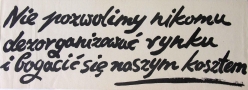 Nie pozwolimy nikomu
dezorganizować rynku
i bogacić się naszym kosztem